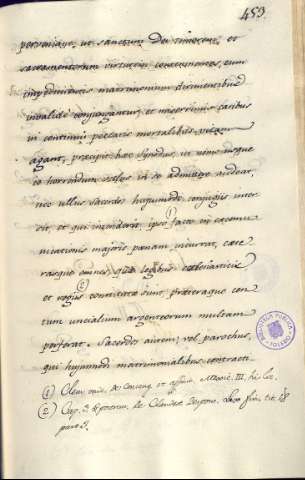 459.
ut sanctum Dei timorem, et
sacramentorum virtutem contemnentes, cum
impedimentis matrimonium dirimentibus
invalide conjungantur, et miserrimis casibus
in continuis peccatis mortalibus vitam
agant, præcipit hæc Synodus, ut nemo usque
eo horrendum scelus in se admittere audeat,
nec ullus sacerdos hujusmodi conjugiis inter
sit, et qui inciderit ipso facto in excomu
nicationis majoris pœnam incurrat, cæte
rasque omnes, quæ legibus ecclesiasticis
et regiis constitutæ sunt, præterque cen
tum uncialium argenteorum multam
perferat. Sacerdos autem, vel parochus,
qui hujusmodi matrimonialibus contracti
(1) Clem. de Consang. et affinit.
(2) Cap. 3
part. 5.
BIBLIOTECA PUBLICA
TOLEDO